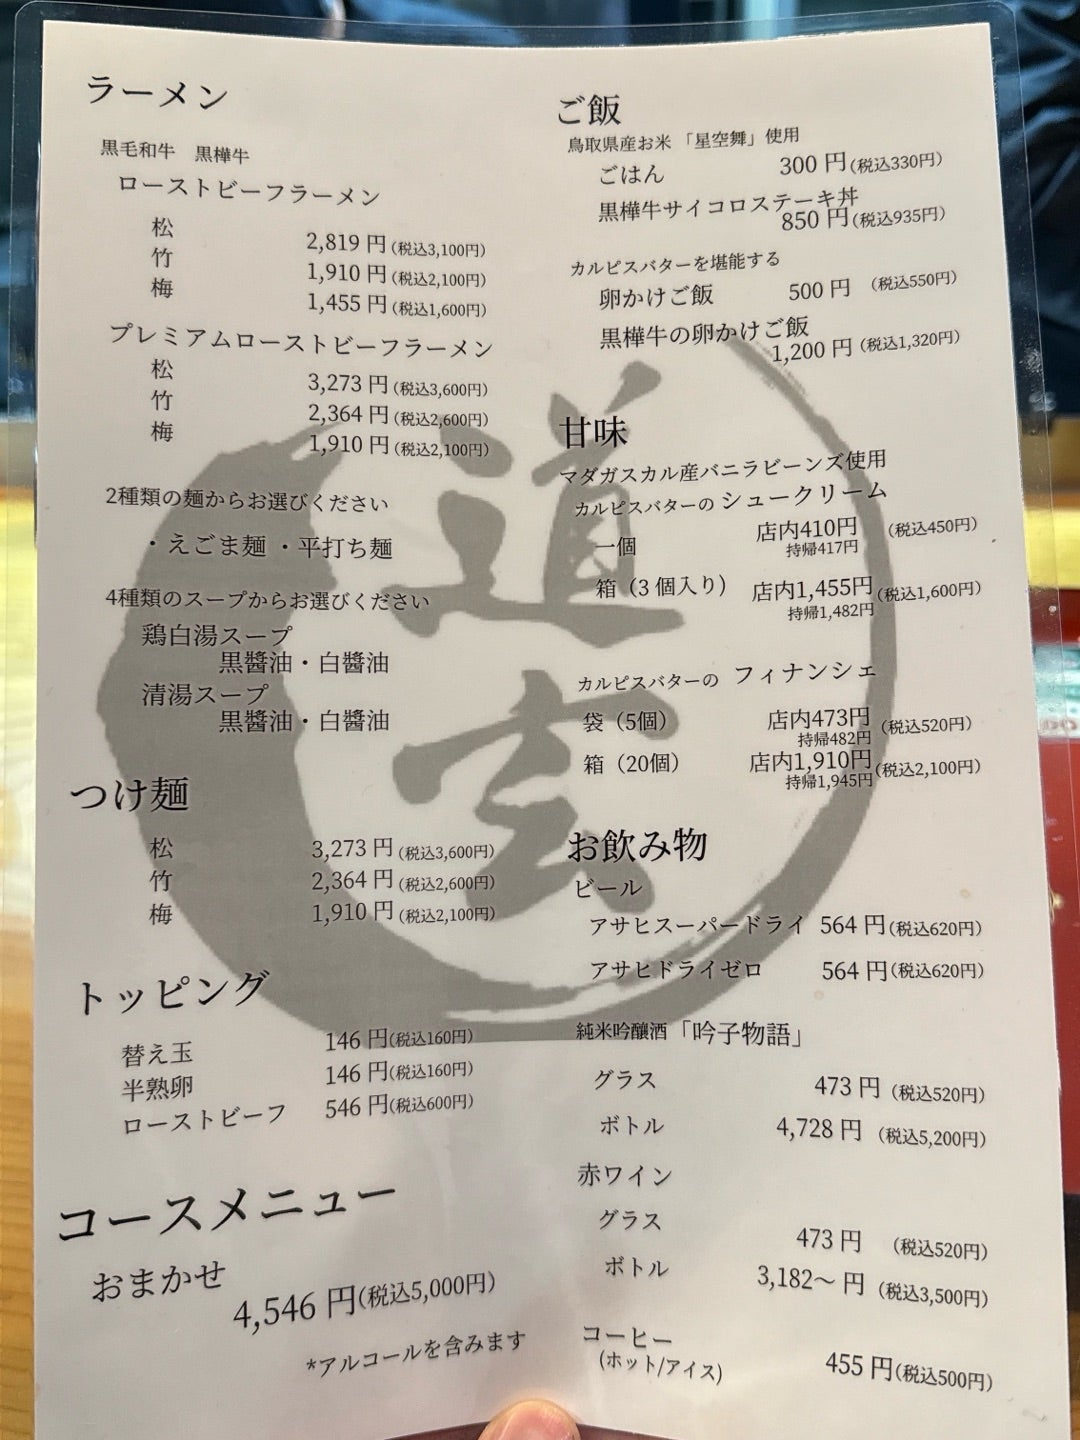 ラーメン
黒毛和牛 黒樺牛
ローストビーフラーメン
松 2,819 円(税込3,100円)
竹 1,910 円(税込2,100円)
梅 1,455 円(税込1,600円)
プレミアムローストビーフラーメン
松 3,273 円(税込3,600円)
竹 2,364 円(税込2,600円)
梅 1,910 円(税込2,100円)
2種類の麺からお選びください
・えごま麺 ・平打ち麺
4種類のスープからお選びください
鶏白湯スープ
黒醬油・白醬油
清湯スープ
黒醬油・白醬油
つけ麺
松 3,273 円(税込3,600円)
竹 2,364 円(税込2,600円)
梅 1,910 円(税込2,100円)
トッピング
替え玉 146 円(税込160円)
半熟卵 146 円(税込160円)
ローストビーフ 546 円(税込600円)
コースメニュー
おまかせ
4,546 円(税込5,000円)
*アルコールを含みます
ご飯
鳥取県産お米 「星空舞」使用
ごはん 300 円(税込330円)
黒樺牛サイコロステーキ丼
850 円(税込935円)
カルピスバターを堪能する
卵かけご飯 500 円 (税込550円)
黒樺牛の卵かけご飯
1,200 円(税込1,320円)
甘味
マダガスカル産バニラビーンズ使用
カルピスバターの シュークリーム
一個 店内410円 (税込450円)
持帰417円
箱(3 個入り) 店内1,455円(税込1,600円)
持帰1,482円
カルピスバターの フィナンシェ
袋(5個) 店内473円 (税込520円)
持帰482円
箱(20個) 店内1,910円(税込2,100円)
持帰1,945円
お飲み物
ビール
アサヒスーパードライ 564 円(税込620円)
アサヒドライゼロ 564 円(税込620円)
純米吟醸酒「吟子物語」
グラス 473 円 (税込520円)
ボトル 4,728 円 (税込5,200円)
赤ワイン
グラス 473 円 (税込520円)
ボトル 3,182〜 円 (税込3,500円)
コーヒー
(ホット/アイス) 455 円(税込500円)
道
玄